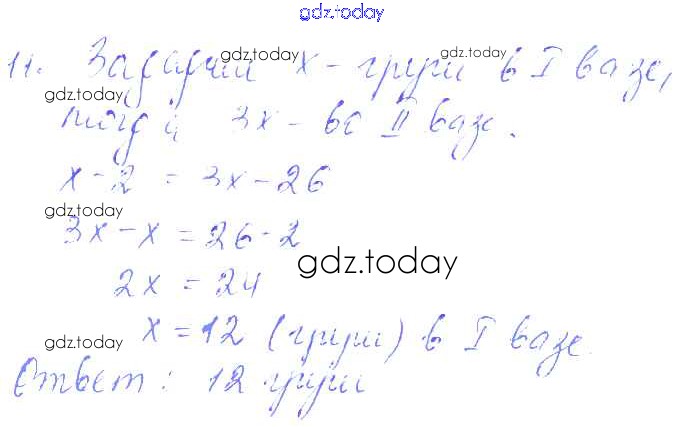 gdz.today
11. Зададим x - груш в I вазе,
gdz.today gdz.today
gdz.today
тогда 3x - во II вазе.
x - 2 = 3x - 26
gdz.today
3x - x = 26 - 2
gdz.today
2x = 24
x = 12 (груш) в I вазе.
gdz.today
Ответ: 12 груш